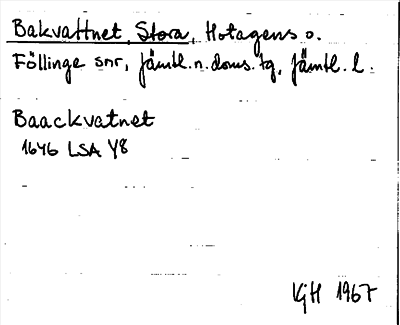 Bakvattnet, Stora, Hotagens o.
Föllinge snr, Jämtl. n. doms. tg, Jämtl. l.
Baackvatnet
1646 LSA Y8
KjH 1967